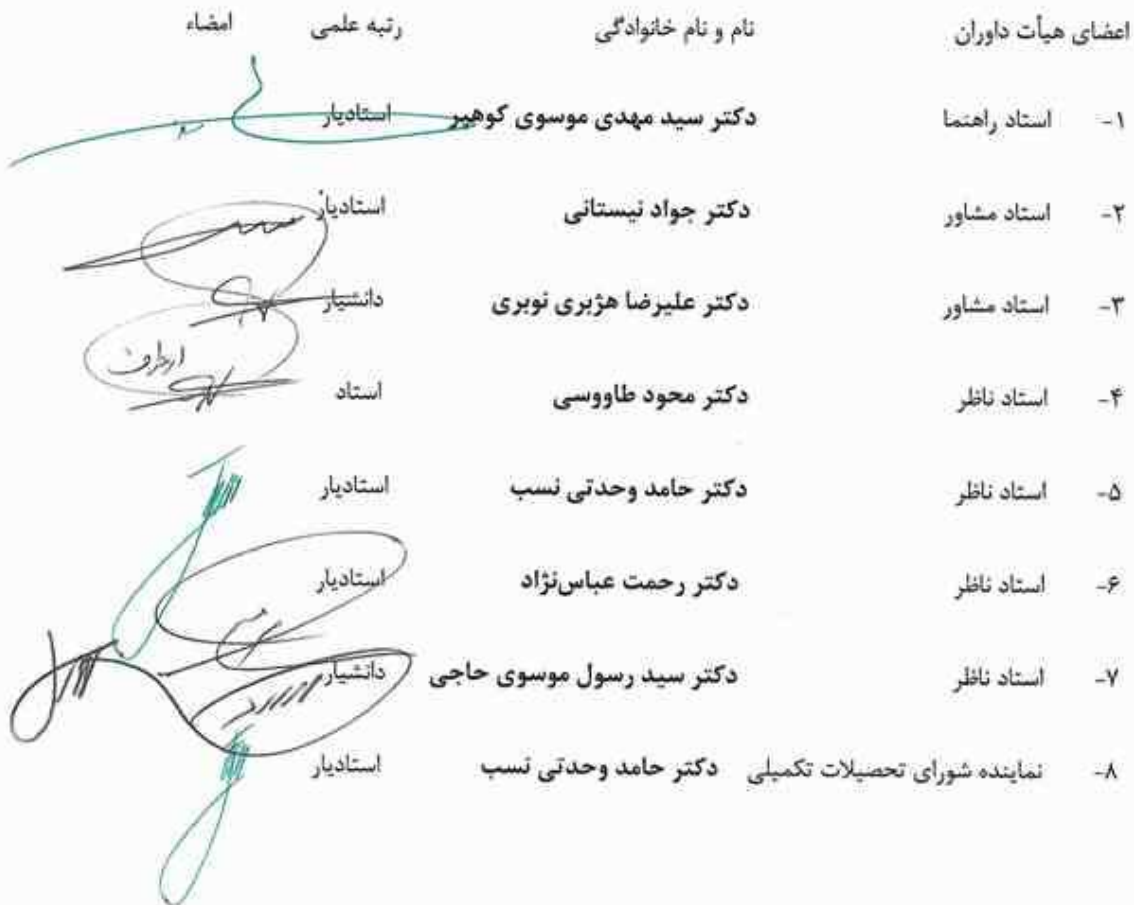 اعضای هیأت داوران نام و نام خانوادگی رتبه علمی امضاء
۱- استاد راهنما دکتر سید مهدی موسوی کوهپر استادیار
۲- استاد مشاور دکتر جواد نیستانی استادیار
۳- استاد مشاور دکتر علیرضا هژبری نوبری دانشیار
از طرف
۴- استاد ناظر دکتر محود طاووسی استاد
۵- استاد ناظر دکتر حامد وحدتی نسب استادیار
۶- استاد ناظر دکتر رحمت عباس‌نژاد استادیار
۷- استاد ناظر دکتر سید رسول موسوی حاجی دانشیار
۸- نماینده شورای تحصیلات تکمیلی دکتر حامد وحدتی نسب استادیار